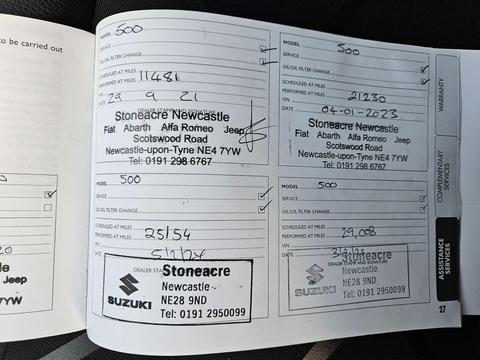 to be carried out
MODEL 500
SERVICE
OIL/OIL FILTER CHANGE
SCHEDULED AT MILES
PERFORMED AT MILES 11481
VIN
DATE 29 9 21
DEALER STAMP AND SIGNATURE
Stoneacre Newcastle
Fiat Abarth Alfa Romeo Jeep
Scotswood Road
Newcastle-upon-Tyne NE4 7YW
Tel: 0191 298 6767
MODEL 500
SERVICE
OIL/OIL FILTER CHANGE
SCHEDULED AT MILES
PERFORMED AT MILES 21230
VIN
DATE 04-01-2023
Stoneacre Newcastle
Fiat Abarth Alfa Romeo Jeep
Scotswood Road
Newcastle-upon-Tyne NE4 7YW
Tel: 0191 298 6767
MODEL 500
SERVICE
OIL/OIL FILTER CHANGE
SCHEDULED AT MILES
PERFORMED AT MILES 25154
VIN
DATE 5/1/24
DEALER STAMP
Stoneacre
SUZUKI
Newcastle
NE28 9ND
Tel: 0191 2950099
MODEL 500
SERVICE
OIL/OIL FILTER CHANGE
SCHEDULED AT MILES
PERFORMED AT MILES 29,008
VIN
DATE
DEALER STAMP AND SIGNATURE
Stoneacre
SUZUKI
Newcastle
NE28 9ND
Tel: 0191 2950099
WARRANTY
COMPLEMENTARY
SERVICES
ASSISTANCE
SERVICES
27
Jeep
7YW